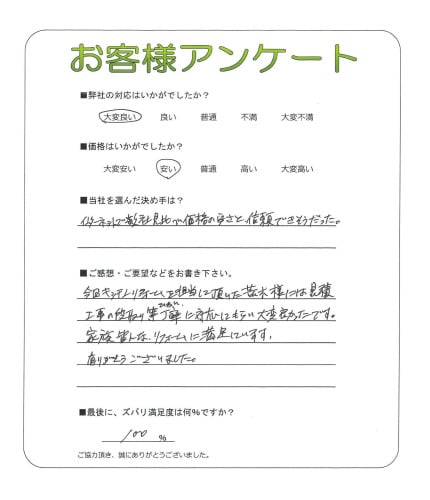 お客様アンケート
■弊社の対応はいかがでしたか？
大変良い 良い 普通 不満 大変不満
■価格はいかがでしたか？
大変安い 安い 普通 高い 大変高い
■当社を選んだ決め手は？
インターネットで数社見比べ価格の安さと、信頼できそうだった。
■ご感想・ご要望などをお書き下さい。
今回キッチンリフォームを担当して頂いた 様には見積
工事の段取り等丁寧に対応してもらい大変良かったです。
家族皆んな、リフォームに満足しています。
ありがとうございました。
■最後に、ズバリ満足度は何％ですか？
100 ％
ご協力頂き、誠にありがとうございました。